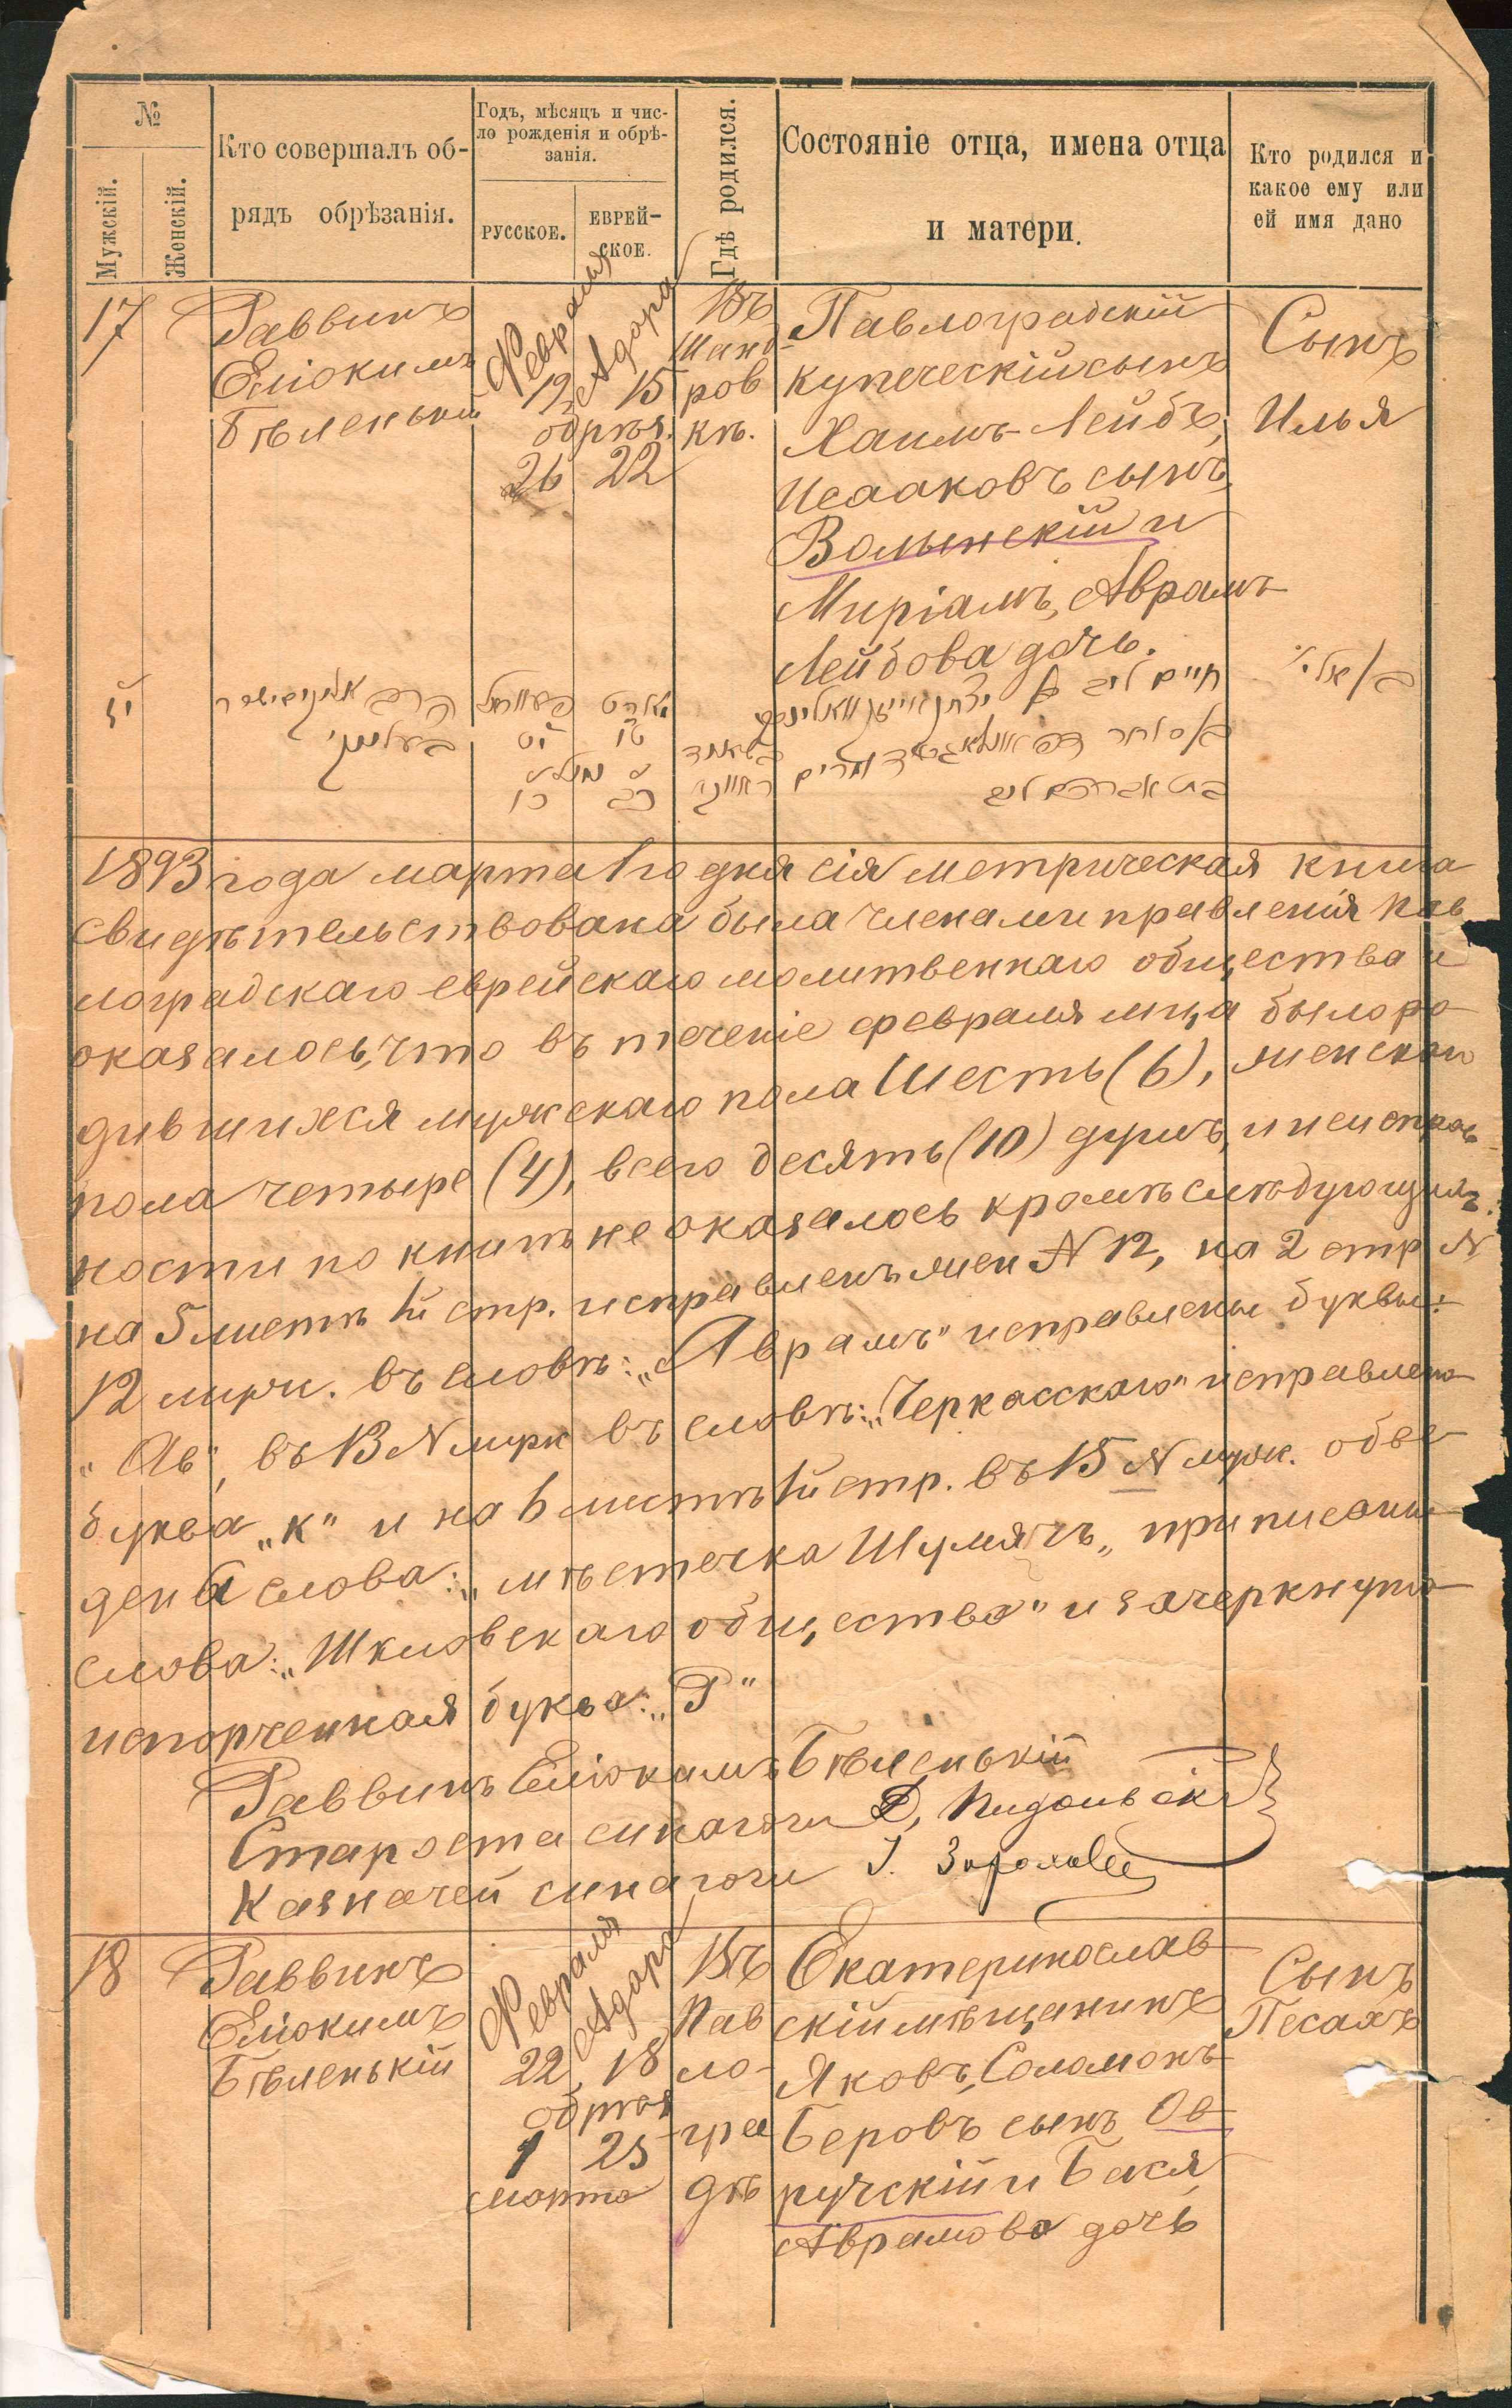 №
Мужскій.
Женскій.
Кто совершалъ об-
рядъ обрѣзанія.
Годъ, мѣсяцъ и чис-
ло рожденія и обрѣ-
занія.
РУССКОЕ.
ЕВРЕЙ-
СКОЕ.
Гдѣ родился.
Состояніе отца, имена отца
и матери.
Кто родился и
какое ему или
ей имя дано
17
Раввинъ
Еліокимъ
Бѣленькій
Февраля
19
Адара
15
обрѣз.
26 22
Въ
Шанд-
ров
кѣ.
Павлоградскій
купеческій сынъ
Хаимъ-Лейбъ,
Исааковъ сынъ
Волынскій и
Миріамъ, Аврамъ
Лейбова дочь.
Сынъ
Илья
1893 года марта 1го дня сія метрическая книга
свидѣтельствована была членами правленія Пав
лоградскаго еврейскаго молитвеннаго общества и
оказалось, что въ теченіе февраля мца было ро-
дившихся мужскаго пола Шесть (6), женскаго
пола четыре (4), всего десять (10) душъ, и неисправ
ности по книгѣ не оказалось кромѣ слѣдующихъ:
на 5 листѣ 1й стр. исправленъ жен № 12, на 2 стр №
12 мужч. въ словѣ: „Аврамъ" исправлены буквы:
„Ав", въ 13 № мужч въ словѣ: „Черкасскаго" исправлена
буква „к" и на 6 листѣ 1й стр. въ 15 № муж. обве
дена слова: „мѣстечка Шумячъ„ приписаны
слова: „Шкловскаго общества" и зачеркнута
испорченная буква: „Р"
Раввинъ Еліокимъ Бѣленькій
Староста синагоги
Казначей синагоги
18
Раввинъ
Еліокимъ
Бѣленькій
Февраля
22
Адара
18
обрѣз
1 25
Марта
Въ
Пав
ло-
гра
дѣ
Екатеринослав-
скій мѣщанинъ
Яковъ, Соломонъ-
Беровъ сынъ Ов-
ручскій и Бася
Аврамова дочь
Сынъ
Песахъ